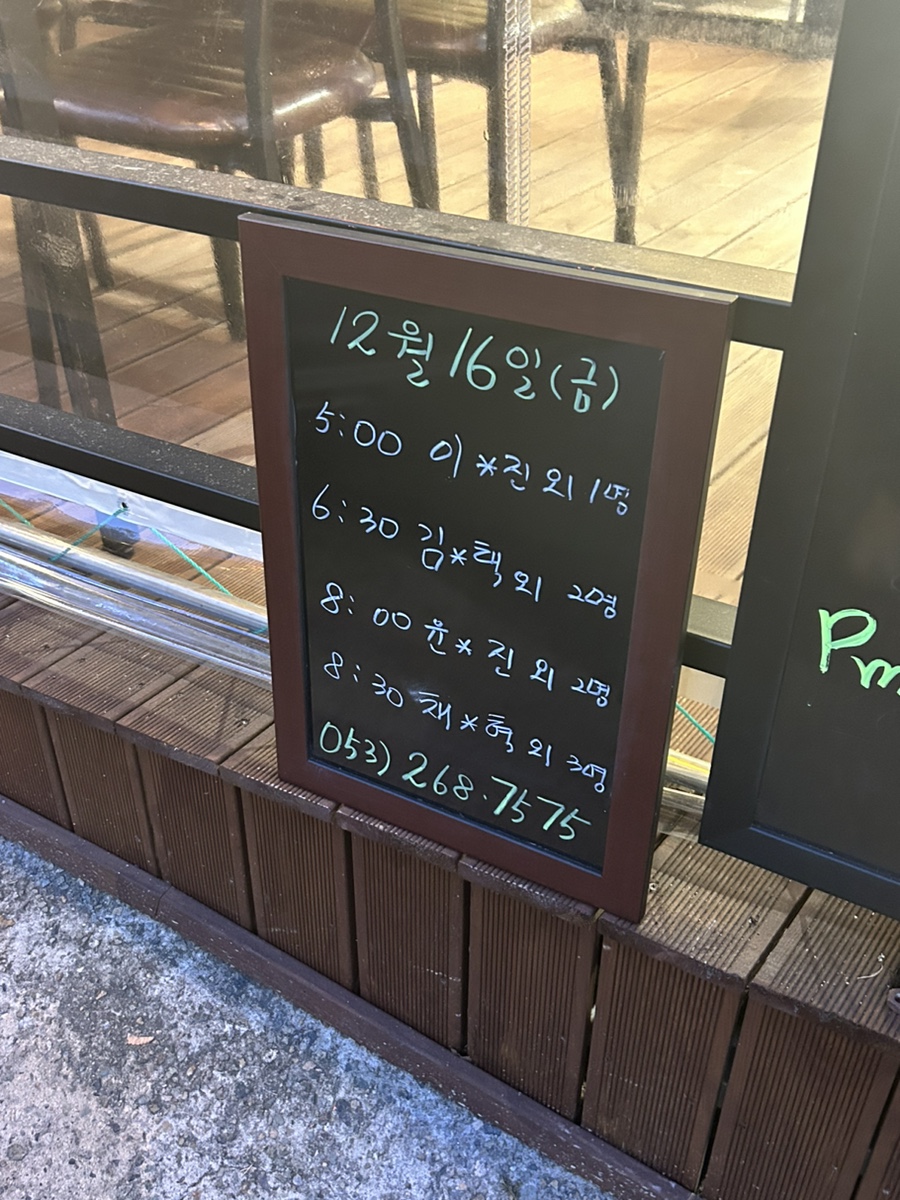 12월 16일(금)
5:00 이*진 외 1명
6:30 김*택 외 2명
8:00 윤*진 외 2명
8:30 채*혁 외 3명
053) 268.7575